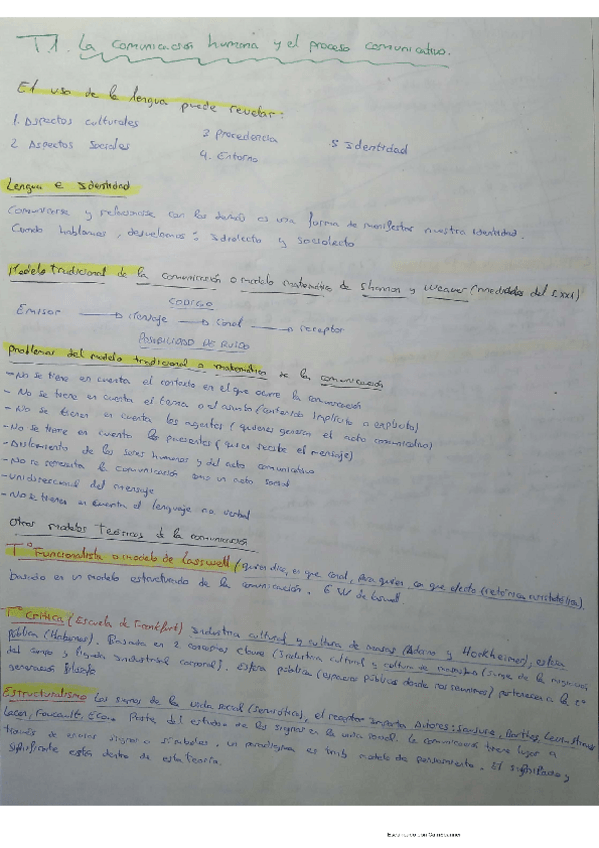 T.1. La comunicación humana y el proceso comunicativo.
El uso de la lengua puede revelar:
1. Aspectos culturales
2. Aspectos Sociales
2 Procedencia
4. Entorno
5 Identidad
Lengua e Identidad
Comunicarse y relacionarse con los demás es una forma de manifestar nuestra identidad.
Cuando hablamos, desvelamos: Idiolecto y sociolecto
Modelo tradicional de la comunicación o modelo matemático de Shannon y Weaver (mediados del S.XXI)
CODIGO
Emisor → Mensaje → Canal → receptor
POSIBILIDAD DE RUIDO
Problemas del modelo tradicional o matemático de la comunicación
- No se tiene en cuenta el contexto en el que ocurre la comunicación
- No se tiene en cuenta el tema o el asunto (contenido implícito o explícito)
- No se tienen en cuenta los agentes (quienes generan el acto comunicativo)
- No se tiene en cuenta los pacientes (quien recibe el mensaje)
- Aislamiento de los seres humanos y del acto comunicativo
- No re la comunicación como un acto social
- Unidireccional del mensaje
- No se tienen en cuenta el lenguaje no verbal
Otros modelos Teóricos de la comunicación
Tª Funcionalista o modelo de Lasswell (quien dice, en que canal, para quien, con que efecto (retórica aristotélica),
basado en un modelo estructurado de la comunicación. 5 W de Laswell
Tª Crítica (Escuela de Frankfurt) Industria cultural y cultura de masas (Adorno y Horkheimer), esfera
pública (Habermas). Basada en 2 conceptos clave (Industria cultural y cultura de masas (surge de la
del campo y llegada industrial corporal). Esfera pública (espacios públicos donde nos reunimos) pertenecen a la 1ª
generación filosofa
Estructuralismo Los signos de la vida social (semiótica), el receptor importa Autores: Sausure, Barthes, Levi-strauss
Lacan, Foucault, Eco. Parte del estudio de los signos en la vida social. La comunicación tiene lugar a
través de enviar signos o símbolos, un paradigma es un modelo de pensamiento. El significado y
significante está dentro de esta teoría.
Escaneado con CamScanner